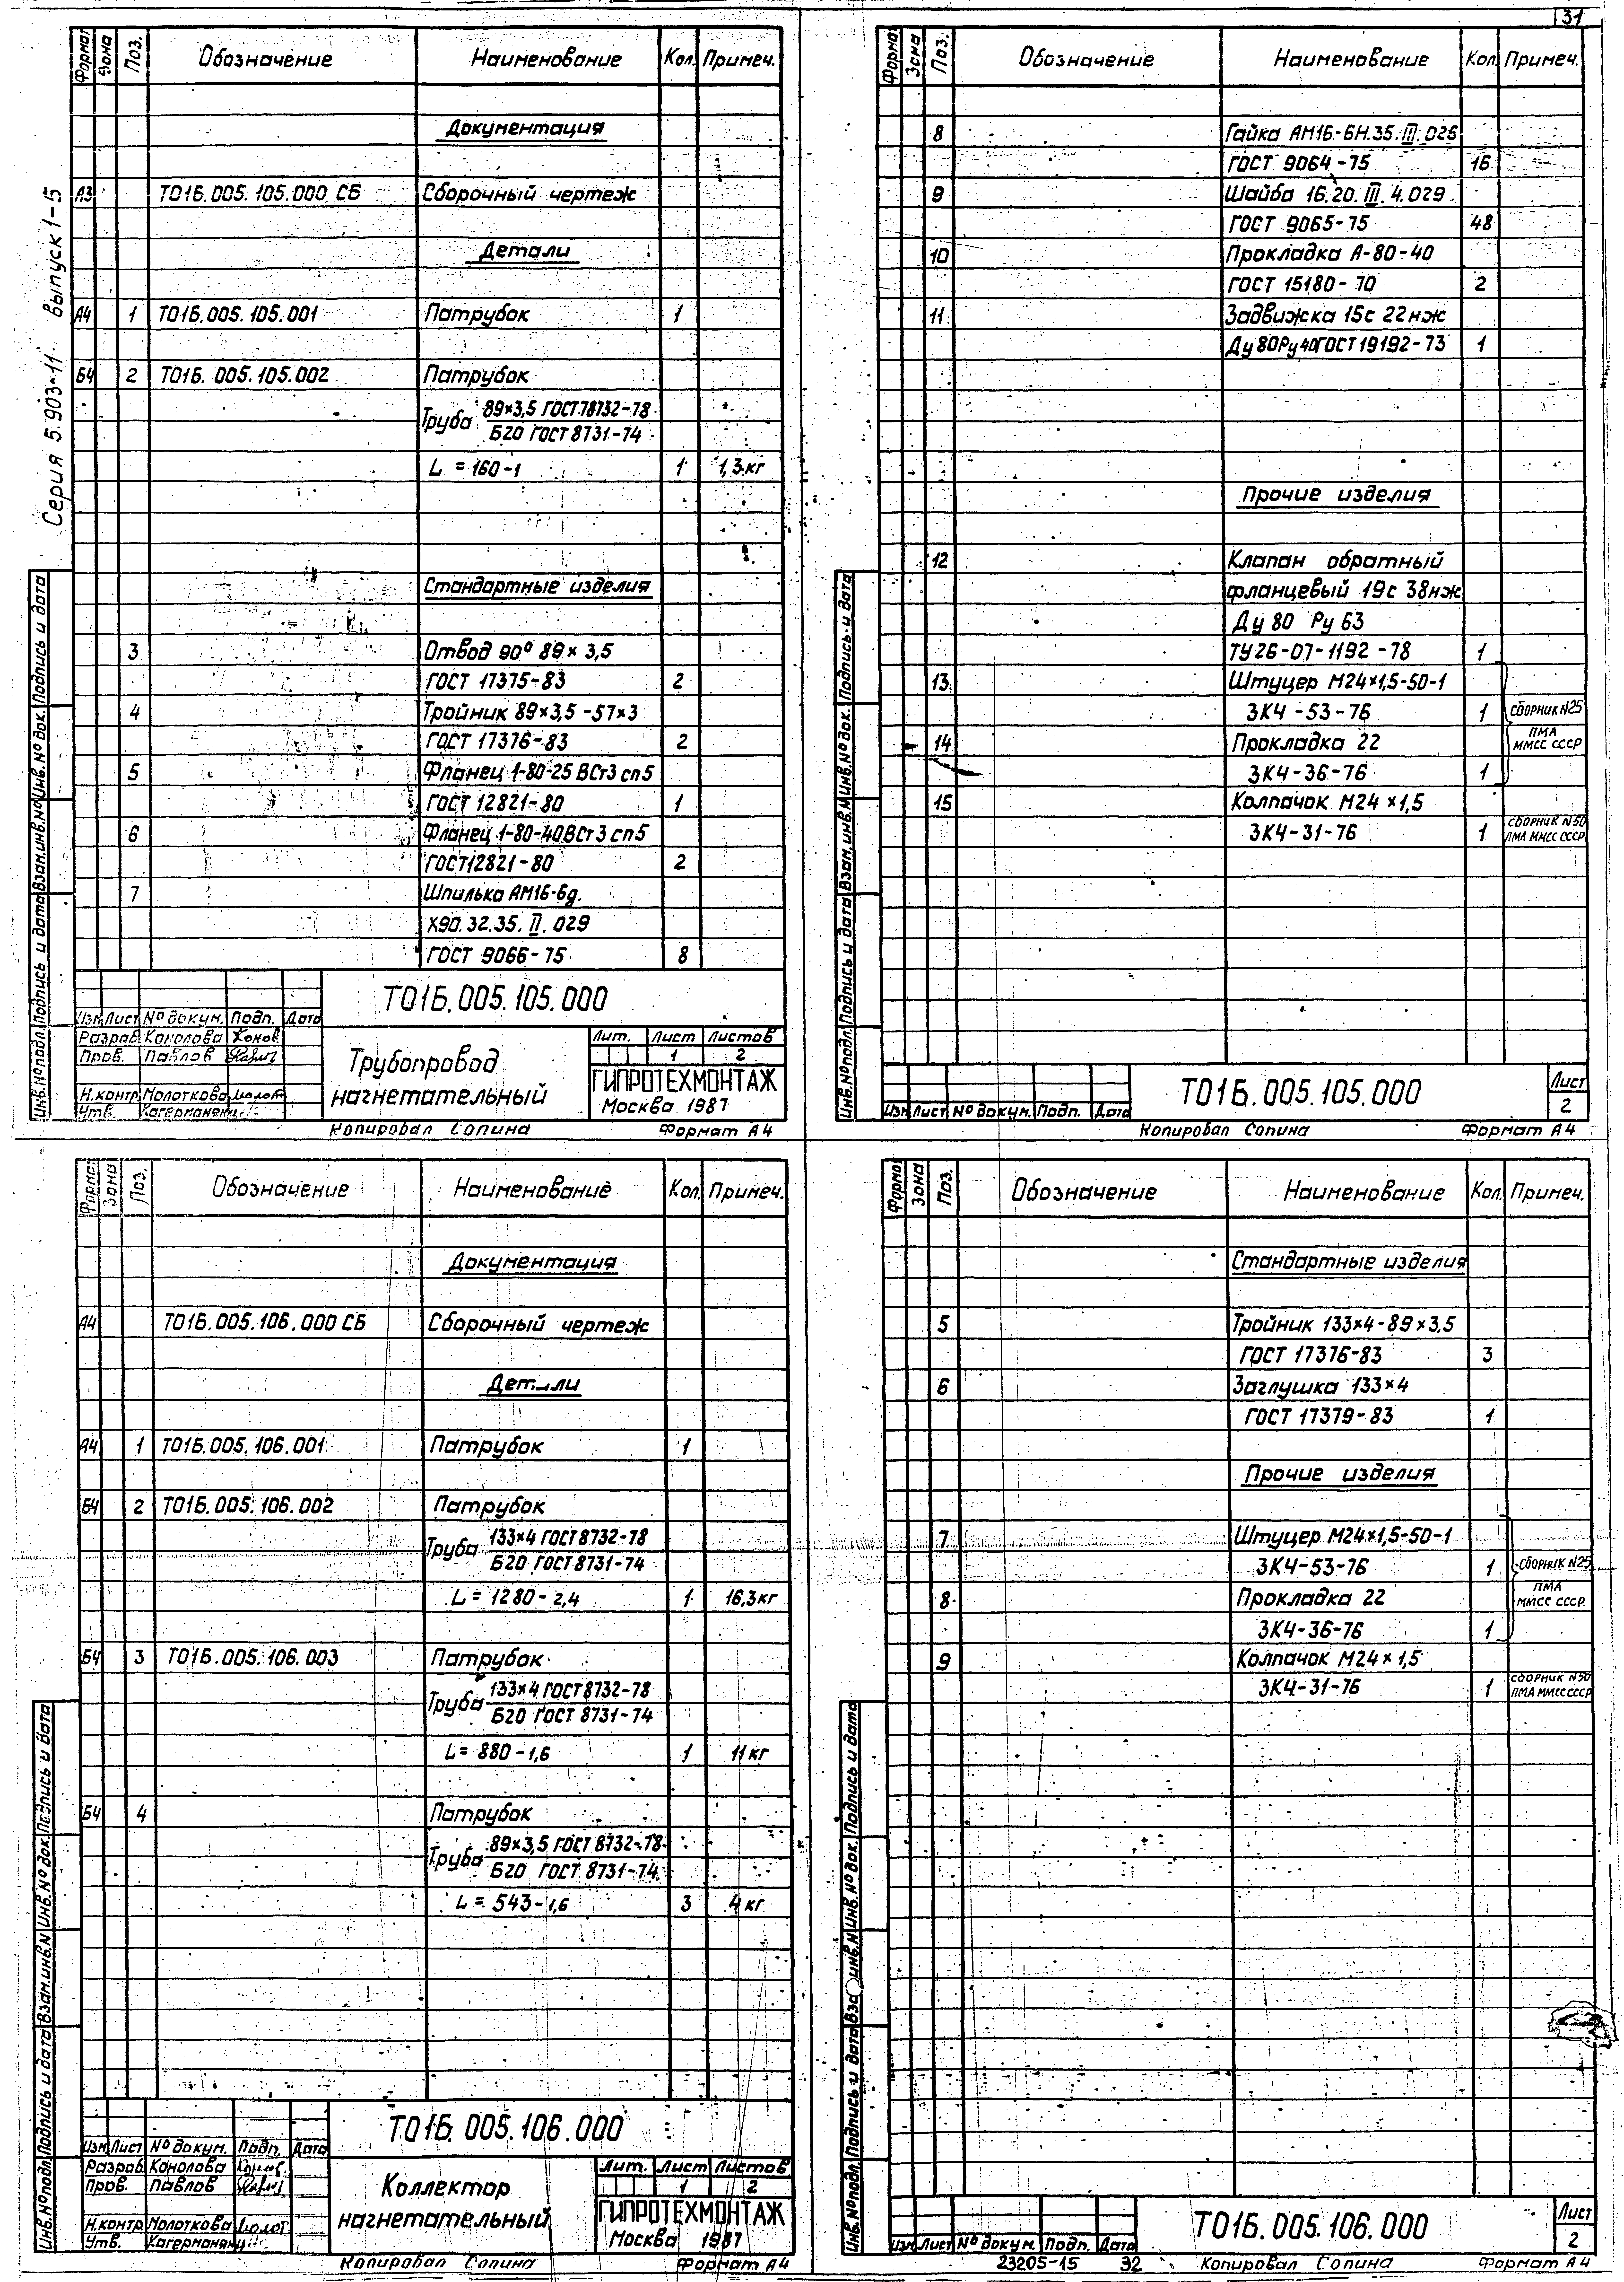 31
Серия 5.903-11 выпуск 1-5
Формат Зона Поз. Обозначение Наименование Кол. Примеч.
Документация
А3 Т01Б.005.105.000 СБ Сборочный чертеж
Детали
А4 1 Т01Б.005.105.001 Патрубок 1
Б4 2 Т01Б.005.105.002 Патрубок
Труба 89×3,5 ГОСТ 78732-78
Б20 ГОСТ 8731-74
L = 160-1 1 1,3 кг
Стандартные изделия
3 Отвод 90° 89×3,5
ГОСТ 17375-83 2
4 Тройник 89×3,5-57×3
ГОСТ 17376-83 2
5 Фланец 1-80-25 ВСт3 сп5
ГОСТ 12821-80 1
6 Фланец 1-80-40 ВСт3 сп5
ГОСТ 12821-80 2
7 Шпилька АМ16-6g.
Х90.32.35.II.029
ГОСТ 9066-75 8
Инв.№ подл. Подпись и дата Взам.инв.№ Инв.№ док. Подпись и дата
Т01Б.005.105.000
Изм Лист № докум. Подп. Дата
Разраб. Конолова
Пров. Павлов
Н.контр. Молоткова
Утв. Кагерманян
Трубопровод
нагнетательный
Лит. Лист Листов
1 2
ГИПРОТЕХМОНТАЖ
Москва 1987
Копировал Сопина Формат А4
Формат Зона Поз. Обозначение Наименование Кол. Примеч.
8 Гайка АМ16-6Н.35.III.026
ГОСТ 9064-75 16
9 Шайба 16.20.III.4.029
ГОСТ 9065-75 48
10 Прокладка А-80-40
ГОСТ 15180-70 2
11 Задвижка 15с 22нж
Ду 80 Ру 40 ГОСТ 19192-73 1
Прочие изделия
12 Клапан обратный
фланцевый 19с 38нж
Ду 80 Ру 63
ТУ 26-07-1192-78 1
13 Штуцер М24×1,5-50-1
ЗК4-53-76 1 сборник N25
14 Прокладка 22 ПМА
ММСС СССР
ЗК4-36-76 1
15 Колпачок М24×1,5
ЗК4-31-76 1 сборник N50
ПМА ММСС СССР
Инв.№ подл. Подпись и дата Взам.инв.№ Инв.№ док. Подпись и дата
Изм Лист № докум. Подп. Дата
Т01Б.005.105.000
Лист
2
Копировал Сопина Формат А4
Формат Зона Поз. Обозначение Наименование Кол. Примеч.
Документация
А4 Т01Б.005.106.000 СБ Сборочный чертеж
Детали
А4 1 Т01Б.005.106.001 Патрубок 1
Б4 2 Т01Б.005.106.002 Патрубок
Труба 133×4 ГОСТ 8732-78
Б20 ГОСТ 8731-74
L = 1280-2,4 1 16,3 кг
Б4 3 Т01Б.005.106.003 Патрубок
Труба 133×4 ГОСТ 8732-78
Б20 ГОСТ 8731-74
L = 880-1,6 1 11 кг
Б4 4 Патрубок
Труба 89×3,5 ГОСТ 8732-78
Б20 ГОСТ 8731-74
L = 543-1,6 3 4 кг
Инв.№ подл. Подпись и дата Взам.инв.№ Инв.№ док. Подпись и дата
Т01Б.005.106.000
Изм Лист № докум. Подп. Дата
Разраб. Конолова
Пров. Павлов
Н.контр. Молоткова
Утв. Кагерманян
Коллектор
нагнетательный
Лит. Лист Листов
1 2
ГИПРОТЕХМОНТАЖ
Москва 1987
Копировал Сопина Формат А4
Формат Зона Поз. Обозначение Наименование Кол. Примеч.
Стандартные изделия
5 Тройник 133×4-89×3,5
ГОСТ 17376-83 3
6 Заглушка 133×4
ГОСТ 17379-83 1
Прочие изделия
7 Штуцер М24×1,5-50-1
ЗК4-53-76 1 сборник N25
8 Прокладка 22 ПМА
ММСС СССР
ЗК4-36-76 1
9 Колпачок М24×1,5
ЗК4-31-76 1 сборник N50
ПМА ММСС СССР
Инв.№ подл. Подпись и дата Вза инв.№ Инв.№ док. Подпись и дата
Изм Лист № докум. Подп. Дата
Т01Б.005.106.000
Лист
2
23205-15 32 Копировал Сопина Формат А4